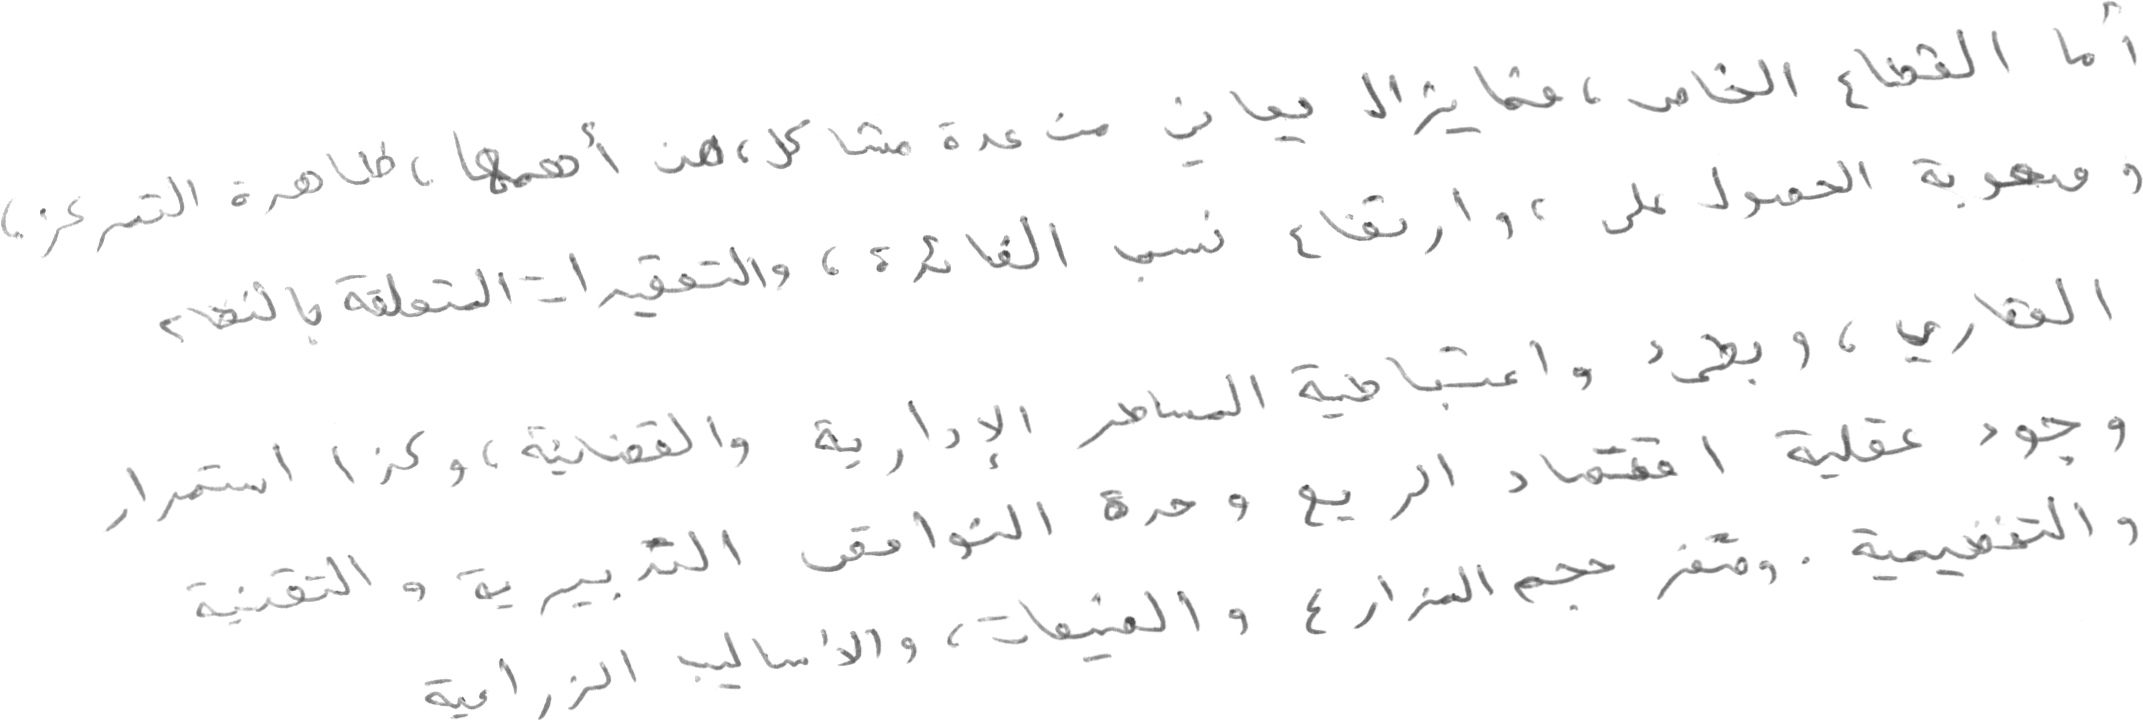 أما القطاع الخاص، فما يزال يعاني من عدة مشاكل، من أهمها، ظاهرة التمركز،
وصعوبة الحصول على، وارتفاع نسب الفائدة، والتعقيدات المتعلقة بالنظام
العقاري، وبطء واعتباطية المساطر الإدارية والقضائية، وكذا استمرار
وجود عقلية اقتصاد الريع وحدة النواقص التدبيرية والتقنية
والتنظيمية. وصغر حجم المزارع والضيعات، والأساليب الزراعية